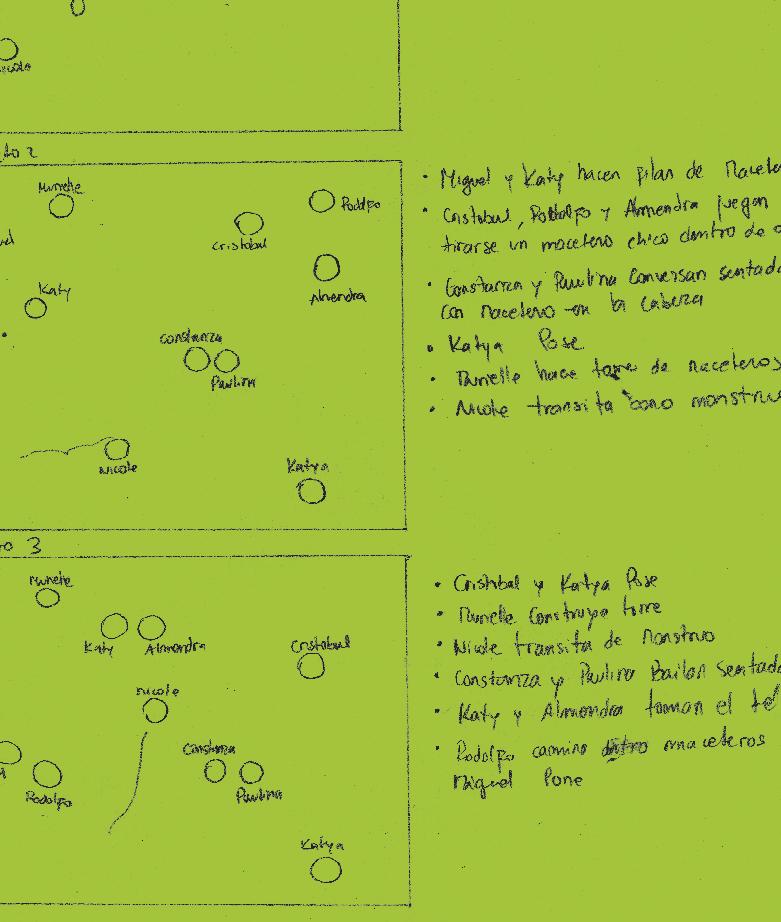 to 2
Murielle
Rodolfo
Cristobal
Katy
Almendra
constanza
Paulina
Nicole
Katya
• Miguel y Katy hacen pilan de Macete
• Cristobal, Rodolfo y Almendra juegan
tirarse un macetero chico dentro de o
• Constanza y Paulina Conversan sentada
con macetero en la cabeza
• Katya Pose
• Murielle hace torre de maceteros
• Nicole transita como monstruo
to 3
Murielle
Katy Almendra
Cristobal
nicole
Constanza
Rodolfo
Paulina
Katya
• Cristobal y Katya Pose
• Murielle Construye torre
• Nicole transita de Monstruo
• Constanza y Paulina Bailan Sentada
• Katy y Almendra toman el té
• Rodolfo camina maceteros
Miguel Pone